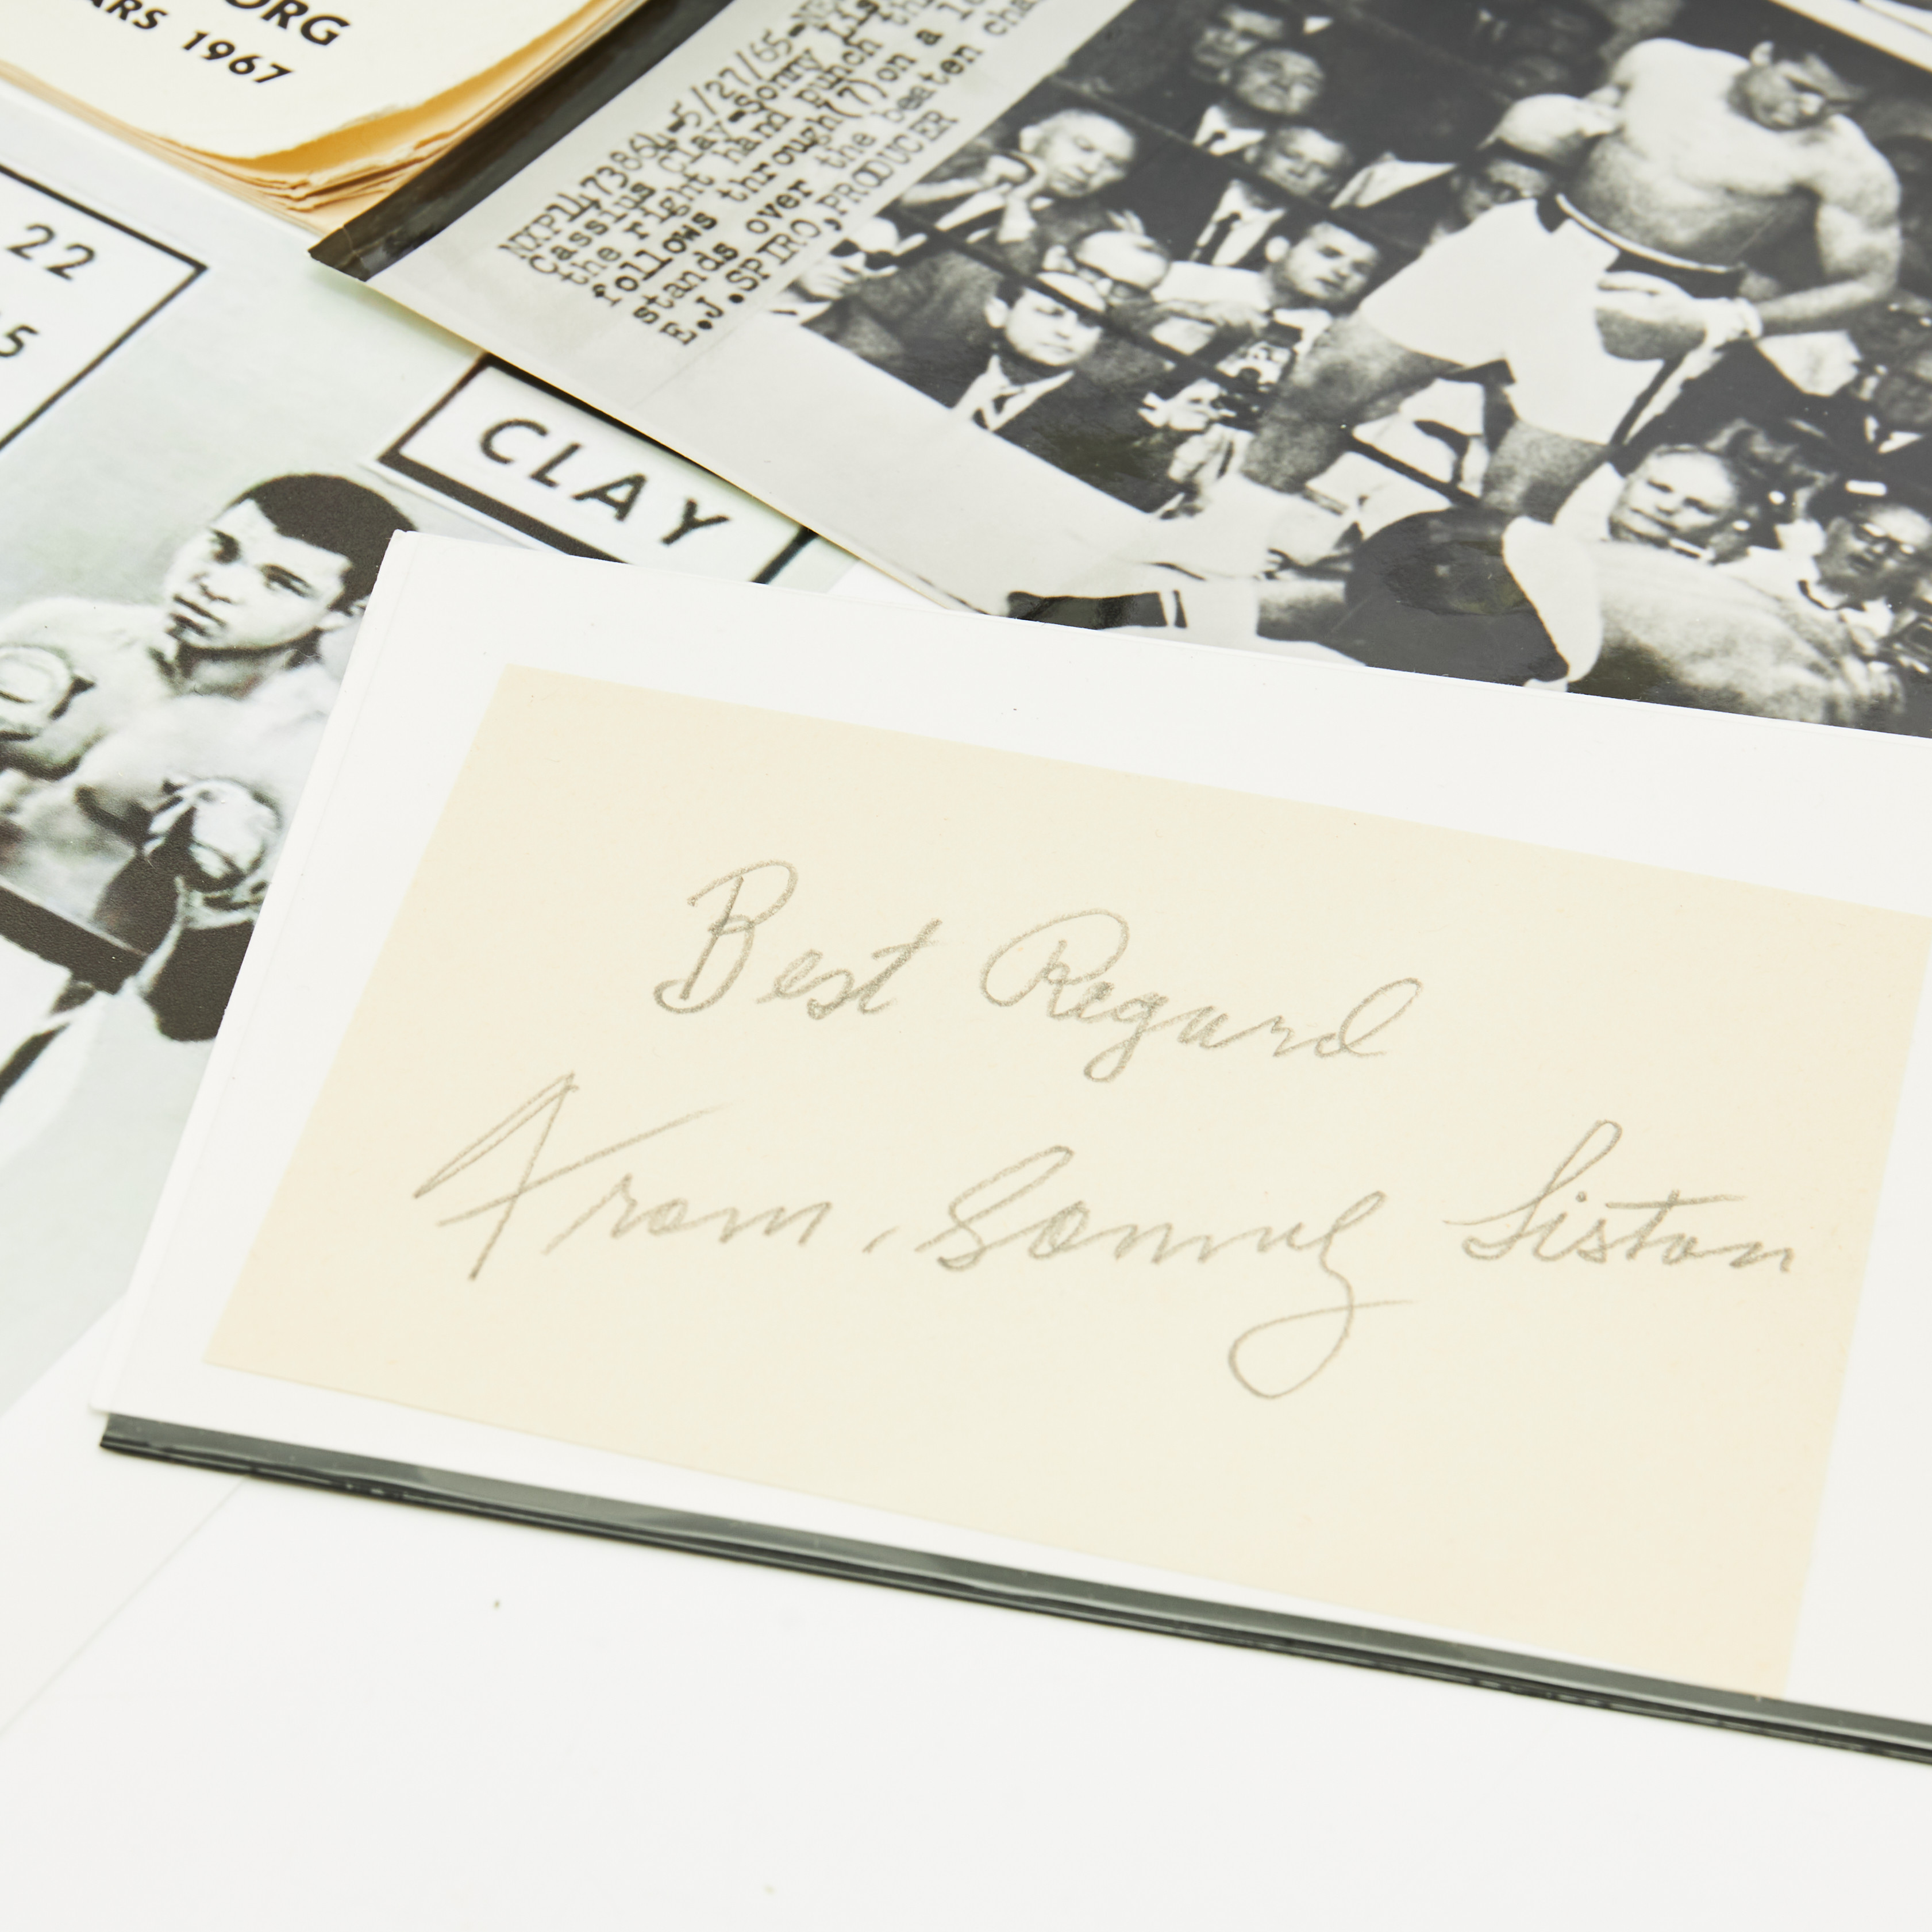 ORG
ARS 1967
22
5
CLAY
NXP1473864-5/27/65-
Cassius Clay-Sonny
the right hand punch
follows through(7)on a
stands over the beaten
E.J.SPIRO,PRODUCER
Best Regard
From, Sonny Liston